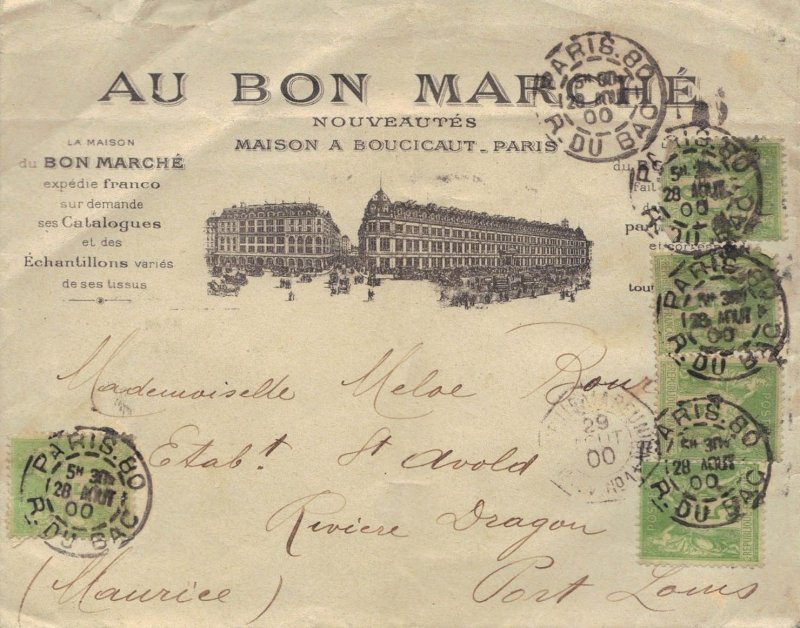 AU BON MARCHÉ
NOUVEAUTÉS
MAISON A BOUCICAUT _ PARIS
LA MAISON
du BON MARCHÉ
expédie franco
sur demande
ses Catalogues
et des
Échantillons variés
de ses tissus
du
fait
et
tout
PARIS.80
28 AOUT
00
R. DU BAC
PARIS.80
5H 30
28 AOUT
00
R. DU BAC
PARIS.80
5H 30
28 AOUT
00
R. DU BAC
PARIS.80
5H 30
28 AOUT
00
R. DU BAC
PARIS.80
5H 30
28 AOUT
00
R. DU BAC
LA REUNION
29
AOUT
00
Mademoiselle Meloe
Etabt. St Avold
Riviere Dragon
(Maurice) Port Louis